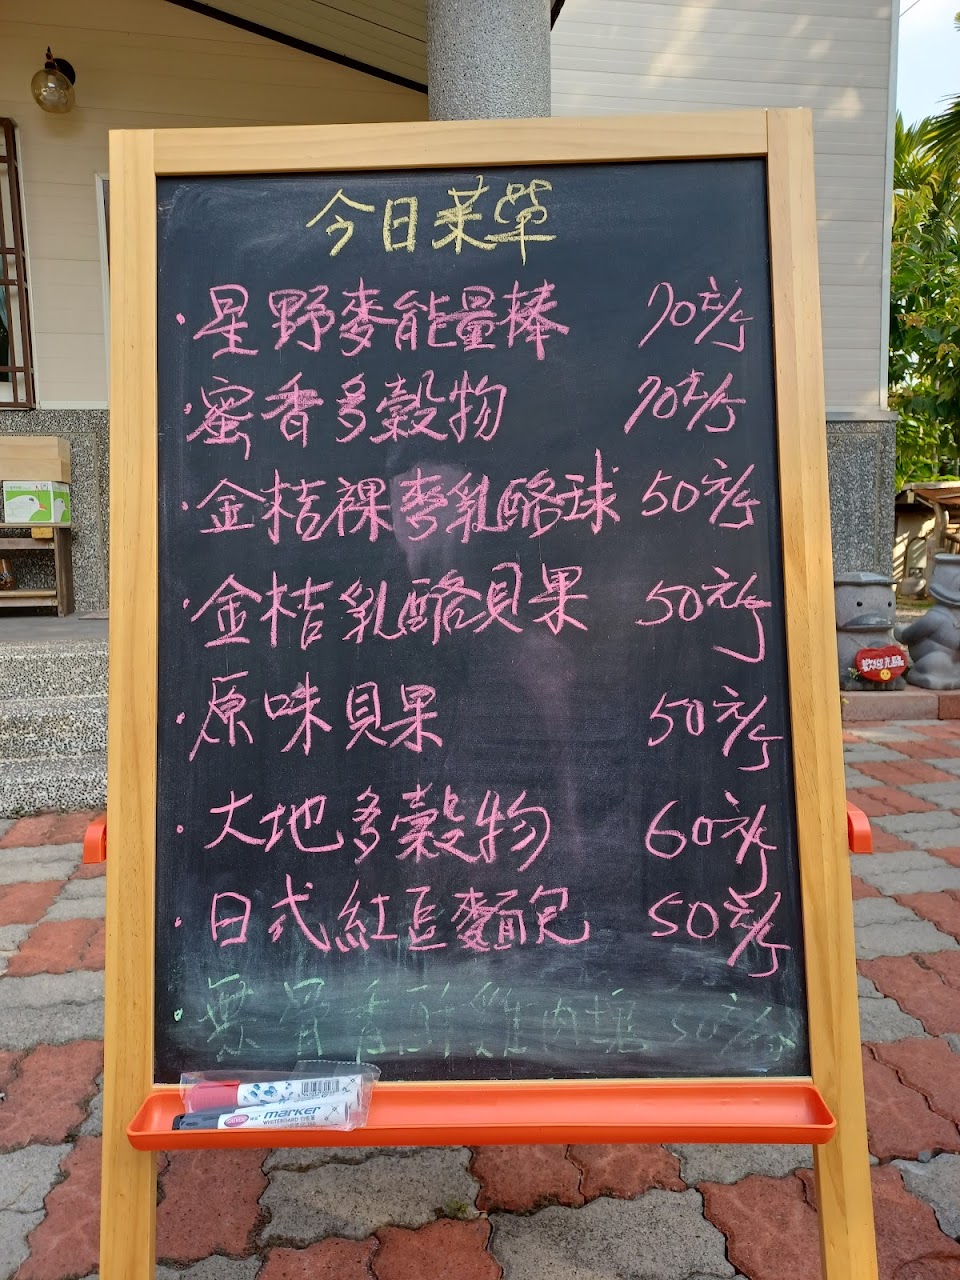 今日菜單
·星野麥能量棒 70元/个
·蜜香多穀物 70元/个
·金桔裸麥乳酪球 50元/个
·金桔乳酪貝果 50元/个
·原味貝果 50元/个
·大地多穀物 60元/个
·日式紅豆麵包 50元/个
·無骨香酥雞肉塊 50元/
marker
WHITEBOARD
歡迎光臨